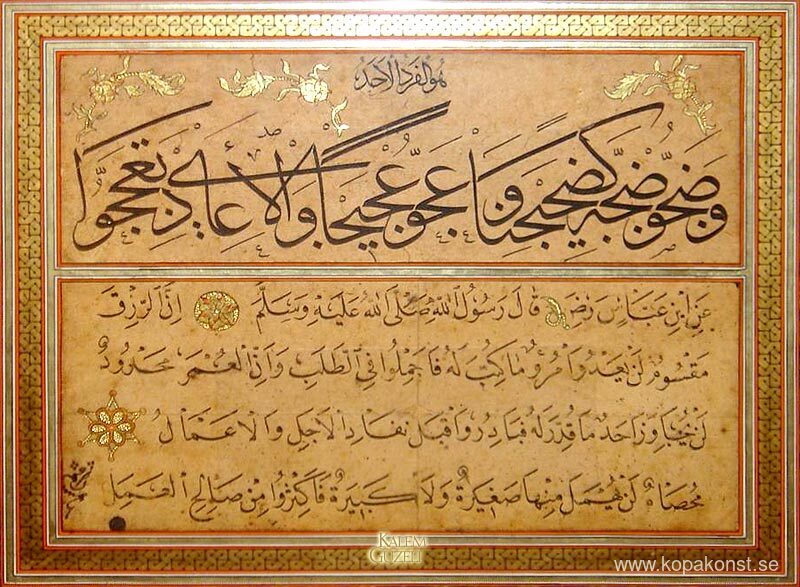 هو الفرد الأحد
وضجوا ضجة كضجيجنا وعجوا عجيجا والأعادي تعججوا
عن ابن عباس رضه قال رسول الله صلى الله عليه وسلم ان الرزق
مقسوم لن يعدو امرؤ ما كتب له فاجملوا في الطلب وان العمر محدود
لن يجاوز احد ما قدر له فبادروا قبل نفاد الاجل والاعمال
محصاة لن يهمل منها صغيرة ولا كبيرة فاكثروا من صالح العمل
KALEM
GÜZELİ
www.kopakonst.se